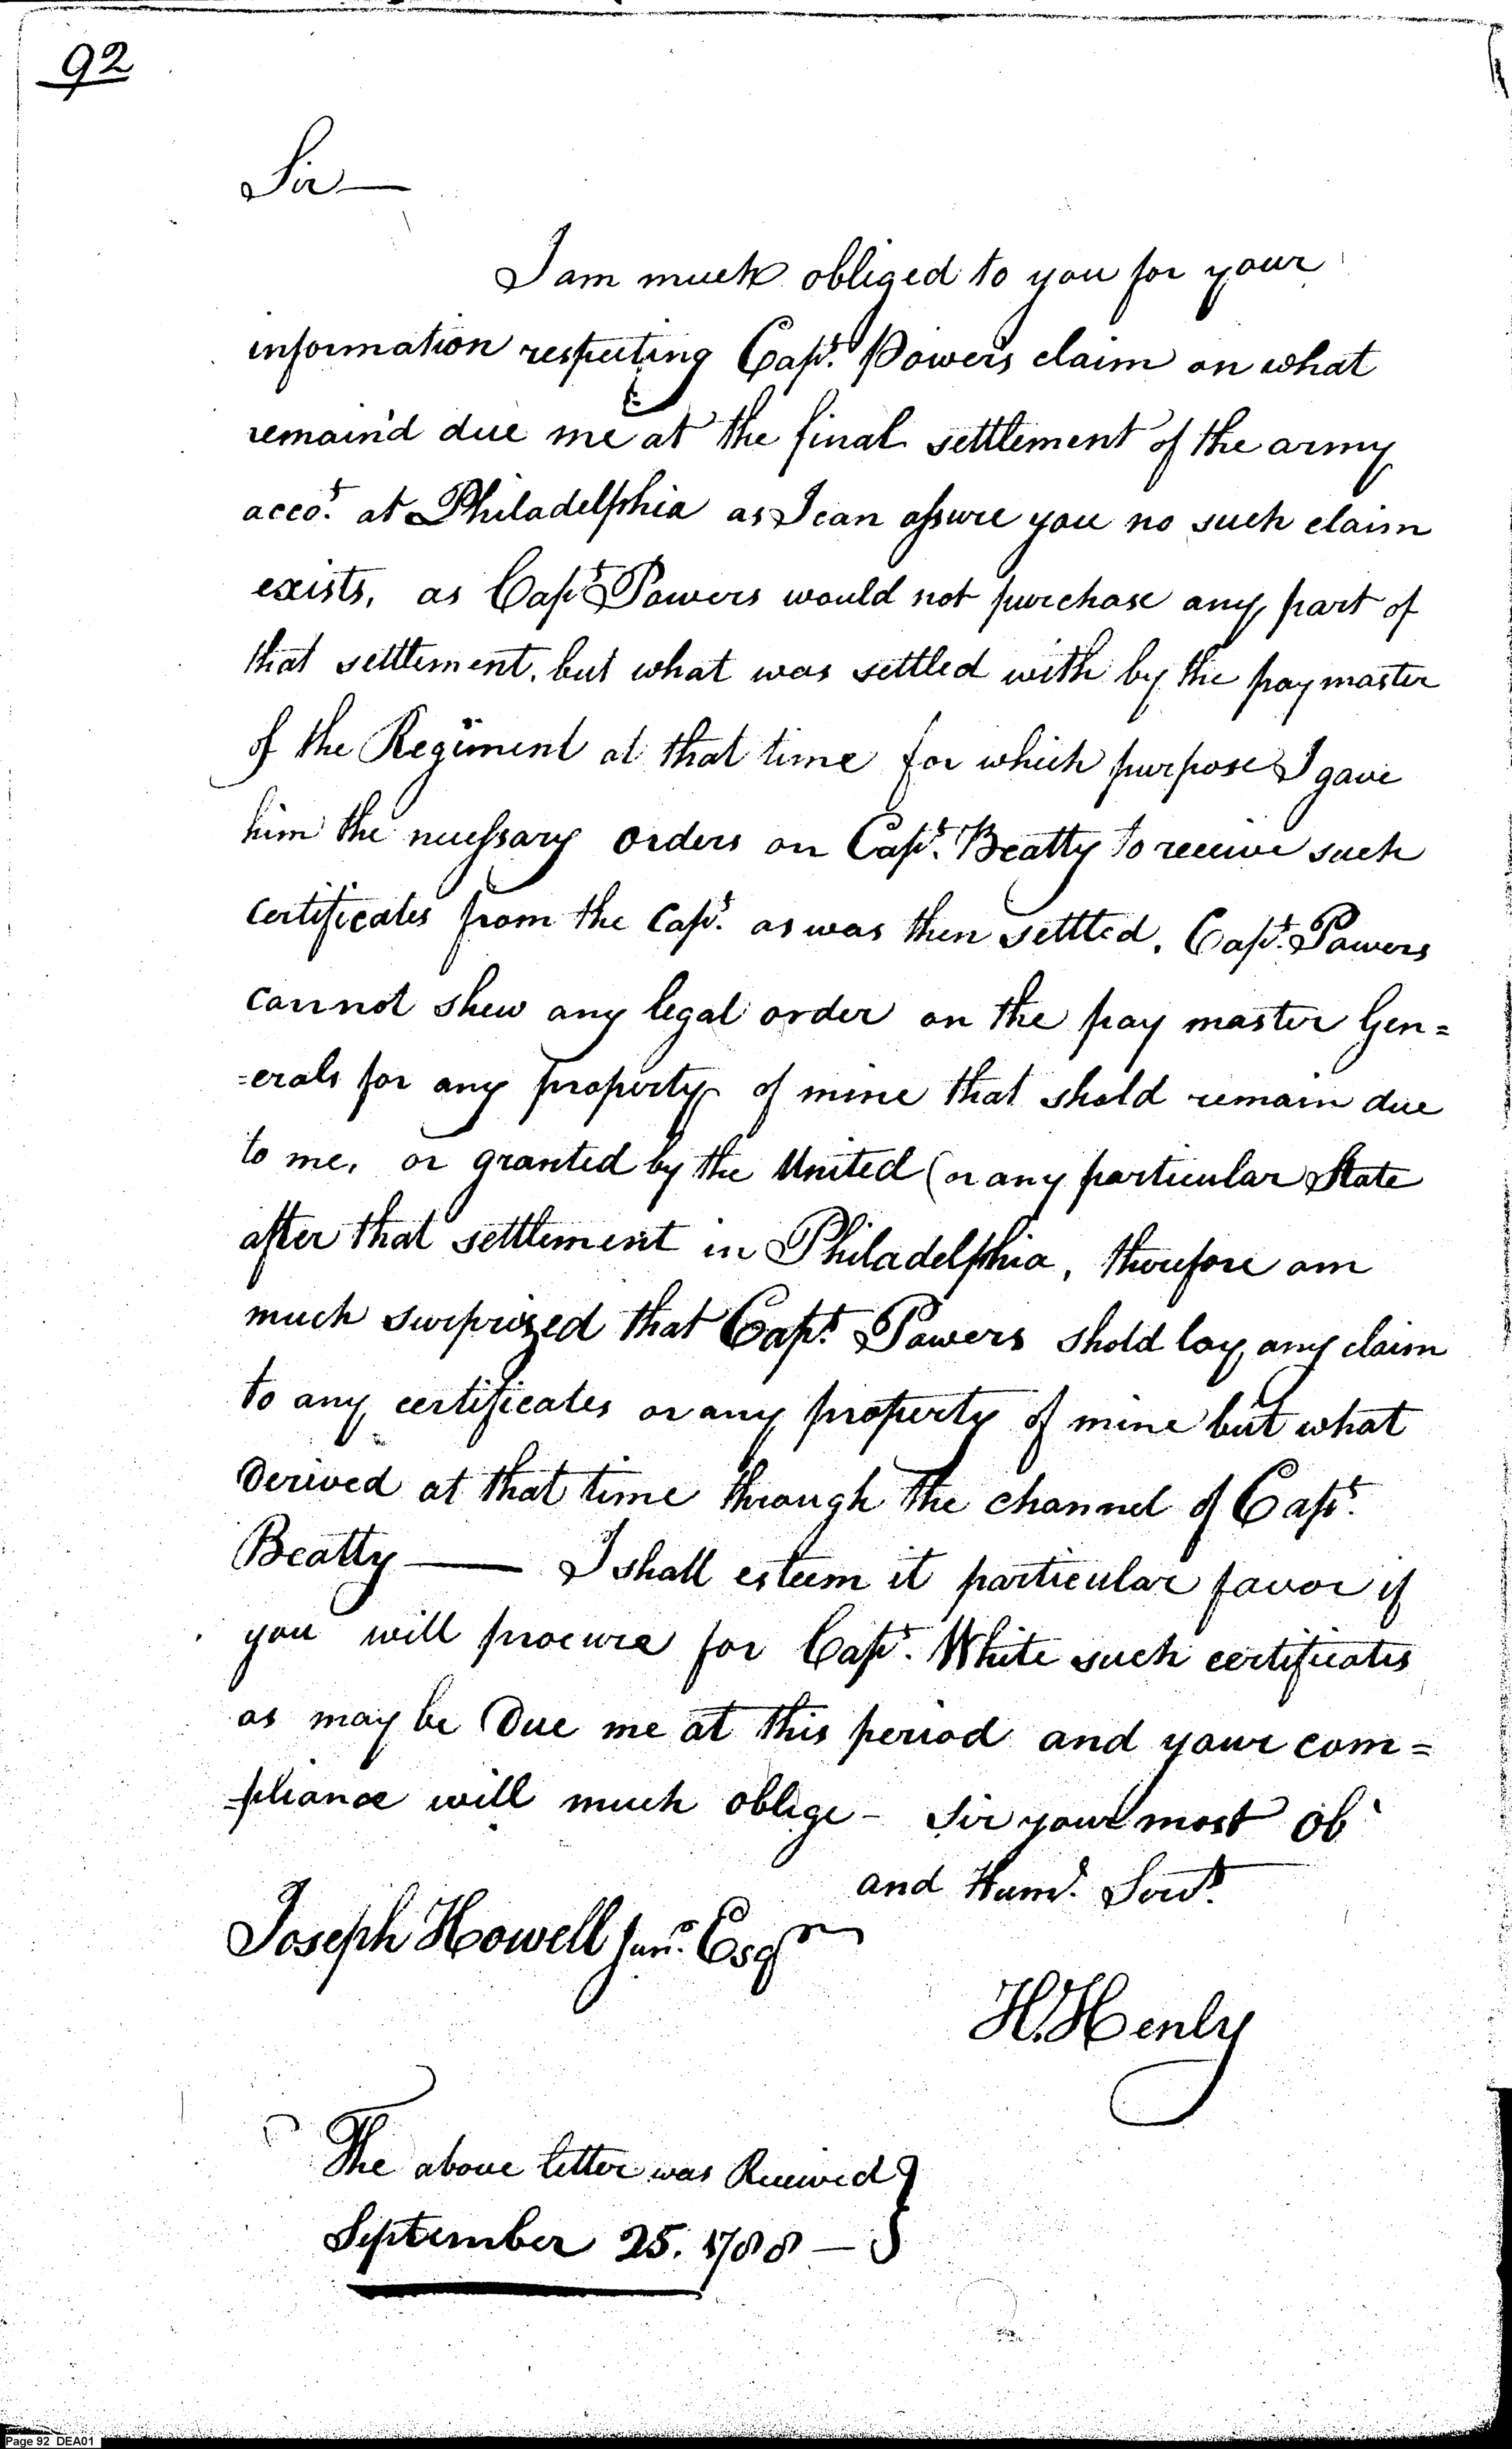 92
Sir—
I am much obliged to you for your
information respecting Capt. Powers claim on what
remain'd due me at the final settlement of the army
accot. at Philadelphia as I can assure you no such claim
exists, as Capt. Powers would not purchase any part of
that settlement, but what was settled with by the paymaster
of the Regiment at that time for which purpose I gave
him the necessary orders on Capt. Beatty to receive such
certificates from the Capt. as was then settled. Capt. Powers
cannot shew any legal order on the pay master Gen=
=erals for any property of mine that shold remain due
to me, or granted by the United (or any particular State
after that settlement in Philadelphia, therefore am
much surprized that Capt. Powers shold lay any claim
to any certificates or any property of mine but what
Derived at that time through the channel of Capt.
Beatty—— I shall esteem it particular favor if
you will procure for Capt. White such certificates
as may be Due me at this period and your com=
=pliance will much oblige - Sir your most Ob
and Hum. Servt.
Joseph Howell Junr. Esqr
H. Henly
The above letter was Received }
September 25. 1788 —
Page 92 DEA01